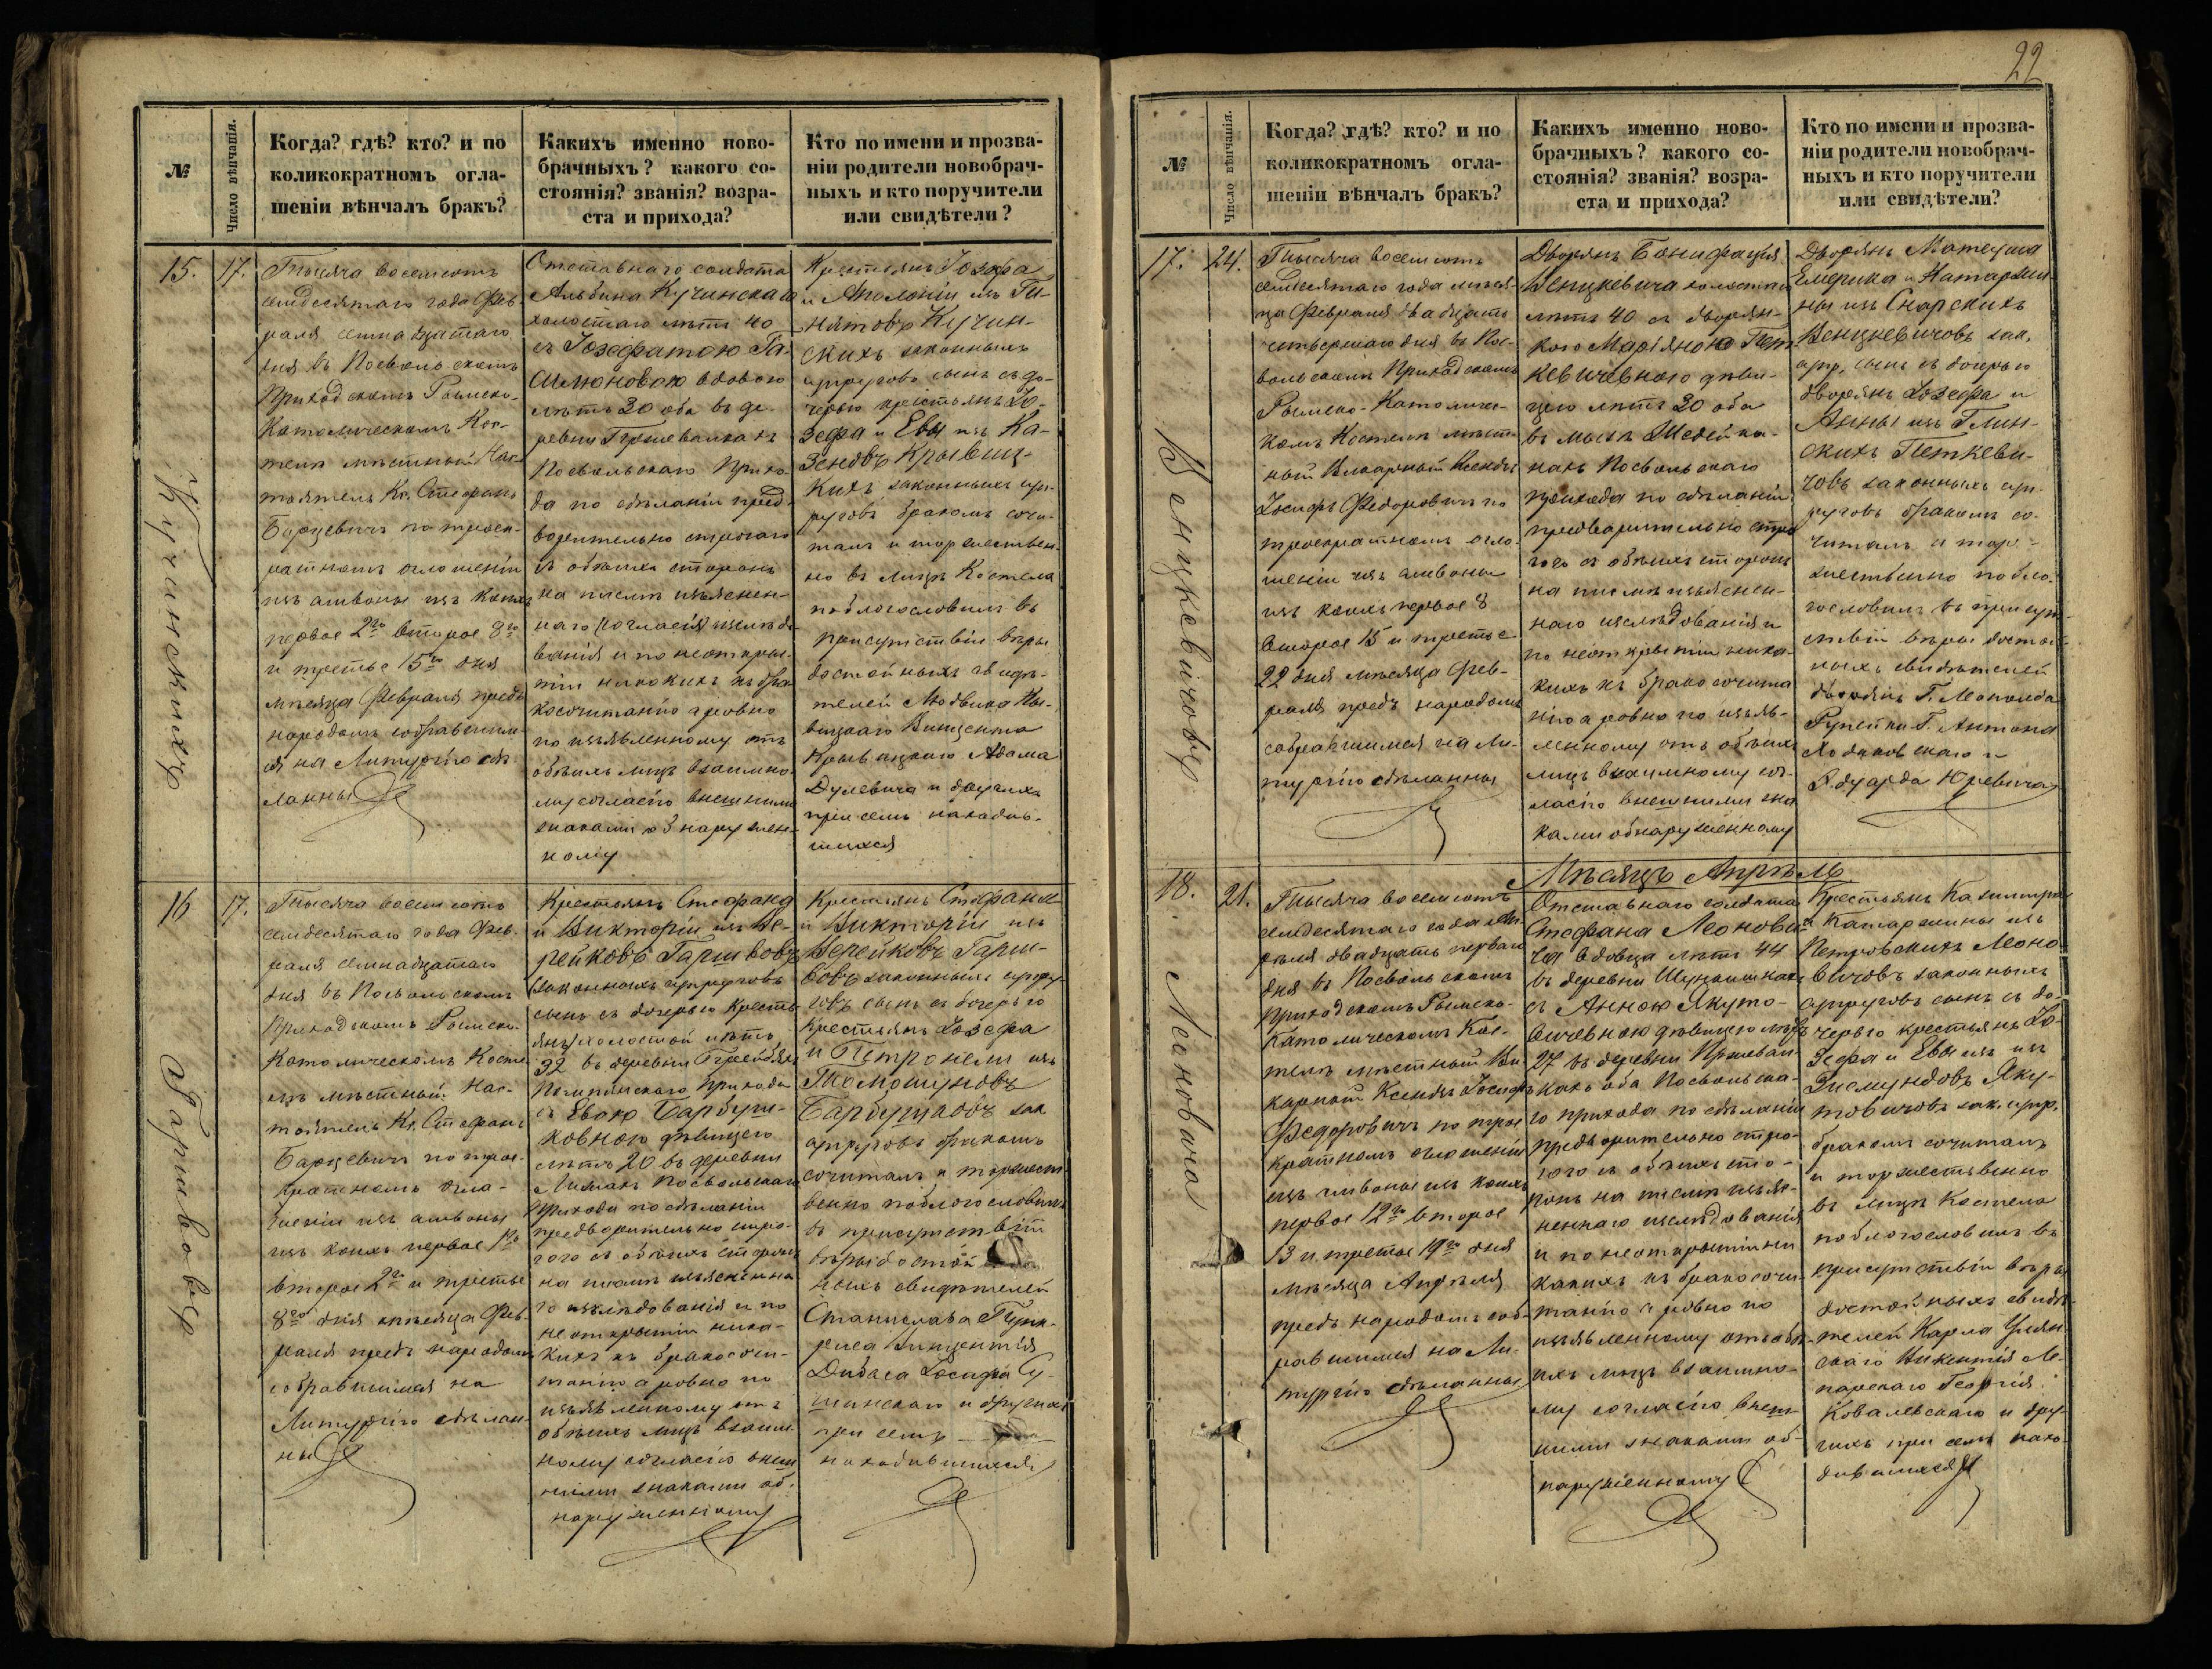 22
№
Число вѣнчанія.
Когда? гдѣ? кто? и по
коликократномъ огла-
шеніи вѣнчалъ бракъ?
Какихъ именно ново-
брачныхъ? какого со-
стоянія? званія? возра-
ста и прихода?
Кто по имени и прозва-
ніи родители новобрач-
ныхъ и кто поручители
или свидѣтели?
15.
17.
Кучинскихъ
Тысяча восемсотъ
семдесятаго года Фев-
раля семнадцатаго
дня въ Посвольскомъ
Приходскомъ Римско-
Католическомъ Кос-
телѣ мѣстный Нас-
тоятель Кс. Стефанъ
Барцевичъ по троек-
ратномъ оглошеніи
изъ амвоны изъ коихъ
первое 2го второе 8го
и третье 15го дня
мѣсяца Февраля предъ
народомъ собравшим-
ся на Литургію сдѣ-
ланны
Отставнаго солдата
Альбина Кучинскаго
холостаго лѣтъ 40
съ Іозефатою Га-
симоновою вдовою
лѣтъ 30 оба въ де-
ревни
Посвольскаго Прихо-
да по сдѣланіи пред-
ворительно строгаго
съ обѣихъ сторонъ
на письмѣ изъяснен-
наго согласія изслѣдо-
ванія и по неоткры-
тіи никакихъ къ бра-
косочитанію а ровно
по изъявленному отъ
обѣихъ лицъ взаимно-
му согласію внешними
знаками обнаружен-
ному
Крестьянъ Іозефа
и Аполоніи изъ Ги-
нятовъ Кучин-
скихъ законныхъ
супруговъ сынъ съ до-
черью крестьянъ Іо-
зефа и Евы изъ Ка-
зеновъ Крывиц-
кихъ законныхъ суп-
руговъ бракомъ сочи-
талъ и торжествен-
но въ лицѣ Костела
поблогословилъ въ
присутствіи вѣры
достойныхъ свидѣ-
телей Людвика
Винцента
Крывицкаго Адама
Дулевича и другихъ
при семъ находив-
шихся
16
17.
Гаршвовъ
Тысяча восемсотъ
семдесятаго года Фев-
раля семнадцатаго
дня въ Посвольскомъ
Приходскомъ Римско-
Католическомъ Косте-
лѣ мѣстный Нас-
тоятель Кс. Стефанъ
Барцевичъ по трое-
кратномъ огла-
шеніи изъ амвоны
изъ коихъ первое 1го
второе 2го и третье
8го дня мѣсяца Фев-
раля предъ народомъ
собравшимся на
Литургію сдѣлан-
ны
Крестьянъ Стефана
и Викторіи изъ Ве-
рейковъ Гаршвовъ
законныхъ супруговъ
сынъ съ дочерью кресть-
янъ холостой лѣтъ
32 въ деревни
Помпянскаго прихода
съ Евою Барбуш-
ковною дѣвицею
лѣтъ 20 въ деревни
Посвольскаго
Прихода по сдѣланіи
предворительно стро-
гого съ обѣихъ сторонъ
на письмѣ изъясненна-
го изслѣдованія и по
неоткрытіи ника-
кихъ къ бракосочи-
танію а ровно по
изъявленному отъ
обѣихъ лицъ взаим-
ному согласію внеш-
ними знаками об-
наруженному
Крестьянъ Стефана
и Викторіи изъ
Верейковъ Гарш-
вовъ законныхъ супру-
говъ сынъ съ дочерью
крестьянъ Іозефа
и Петронели изъ
Томошуновъ
зак.
супруговъ бракомъ
сочиталъ и торжест-
венно поблогословилъ
въ присутствіи
вѣры достой-
ныхъ свидѣтелей
Станислава
Винцентія
Дибаса Іосифа
и другихъ
при семъ
находившихся
№
Число вѣнчанія.
Когда? гдѣ? кто? и по
коликократномъ огла-
шеніи вѣнчалъ бракъ?
Какихъ именно ново-
брачныхъ? какого со-
стоянія? званія? возра-
ста и прихода?
Кто по имени и прозва-
ніи родители новобрач-
ныхъ и кто поручители
или свидѣтели?
17.
24.
Венцкевичовъ
Тысяча восемсотъ
семдесятаго года мѣся-
ца Февраля двадцать
четвертаго дня въ Пос-
вольскомъ Приходскомъ
Римско-Католичес-
комъ Костелѣ мѣст-
ный Викарный Ксендзъ
Іосифъ Федоровичъ по
троекратномъ огло-
шеніи изъ амвоны
изъ коихъ первое 8
второе 15 и третье
22 дня мѣсяца Фев-
раля предъ народомъ
собравшимся на Ли-
тургію сдѣланны
Дворянъ Бонифація
Венцкевича холостаго
лѣтъ 40 съ дворян-
кою Маріяною Пет-
кевичевною дѣви-
цею лѣтъ 30 оба
въ
Посвольскаго
прихода по сдѣланіи
предварительно стро-
гого съ обѣихъ сторонъ
на письмѣ изъяснен-
наго изслѣдованія и
по неоткрытіи ника-
кихъ къ бракосочита-
нію а ровно по изъяв-
ленному отъ обѣихъ
лицъ взаимному сог-
ласію внешними зна-
ками обнаруженному
Дворянъ Матеуша
Емерика и Катаржи-
ны изъ Снарскихъ
Венцкевичовъ зак.
супр. сынъ съ дочерью
дворянъ Іозефа и
Анны изъ Глин-
скихъ Петкеви-
човъ законныхъ суп-
руговъ бракомъ со-
читалъ и тор-
жественно побло-
гословилъ въ присут-
ствіи вѣры достой-
ныхъ свидѣтелей
дворянъ Г. Леопольда
Рупейки Г. Антона
Ходаковскаго и
Эдуарда Юревича
Мѣсяцъ Апрѣль
18.
21.
Леоновича
Тысяча восемсотъ
семдесятаго года Ап-
рѣля двадцать перваго
дня въ Посвольскомъ
приходскомъ Римско-
Католическомъ Кос-
телѣ мѣстный Ви-
карный Ксендзъ Іосифъ
Федоровичъ по трое-
кратномъ оглошеніи
изъ амвоны изъ коихъ
первое 12го второе
13 и третье 19го дня
мѣсяца Апрѣля
предъ народомъ соб-
равшимся на Ли-
тургію сдѣланны
Отставнаго солдата
Стефана Леонови-
ча вдовца лѣтъ 44
въ деревни
съ Анною Якуто-
вичевною дѣвицею лѣтъ
27 въ деревни
оба Посвольска-
го прихода по сдѣланіи
предворительно стро-
гого съ обѣихъ сто-
ронъ на письмѣ изъяс-
неннаго изслѣдованія
и по неоткрытіи ни
какихъ къ бракосочи-
танію а ровно по
изъявленному отъ обѣ-
ихъ лицъ взаимно-
му согласію внеш-
ними знаками об-
наруженному
Крестьянъ Казимира
и Катаржины изъ
Петровскихъ Леоно-
вичовъ законныхъ
супруговъ сынъ съ до-
черью крестьянъ Іо-
зефа и Евы изъ
Якутовичовъ зак. супр.
бракомъ сочиталъ
и торжественно
въ лицѣ Костела
поблогословилъ въ
присутствіи вѣры
достойныхъ свидѣ-
телей Карла
Викентія
Георгія
Ковалевскаго и дру-
гихъ при семъ нахо-
дившихся